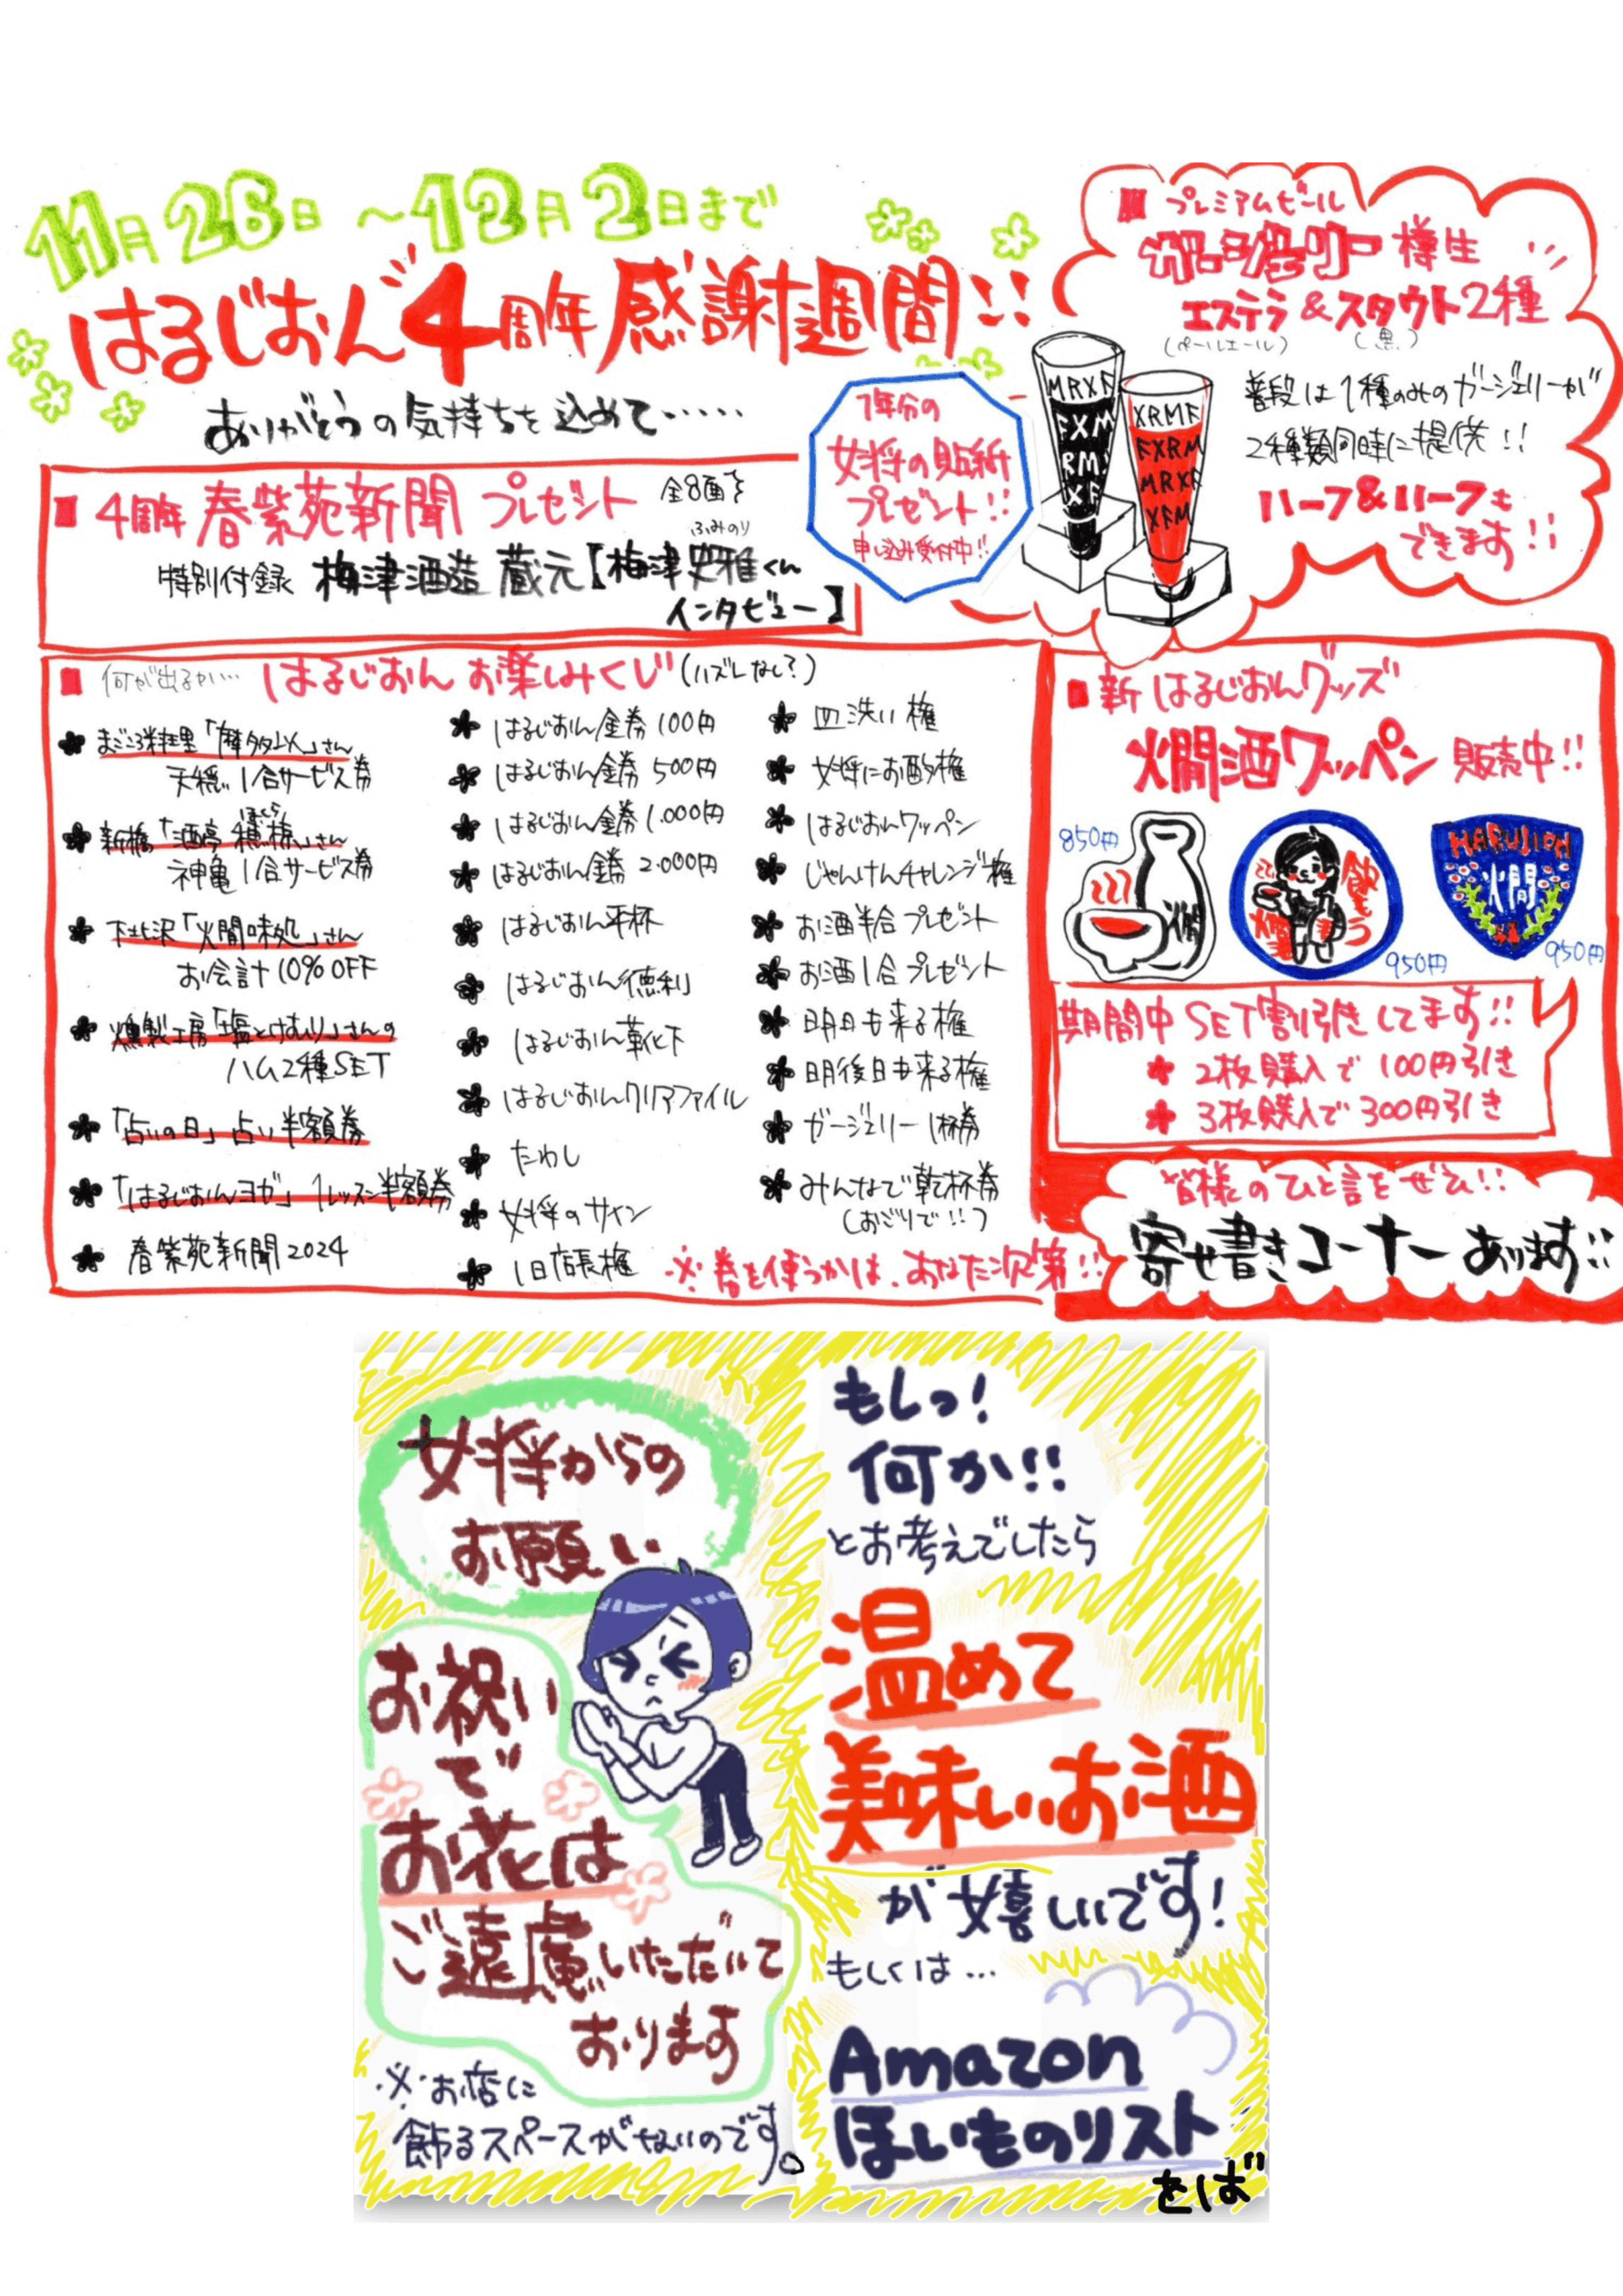 11月26日～12月2日まで
はるじおん4周年感謝週間!!
ありがとうの気持ちを込めて……
■4周年 春紫苑新聞 プレゼント 全8面を
特別付録 梅津酒造 蔵元【梅津史雅くん
ふみのり
インタビュー】
1年分の
女将の貼紙
プレゼント!!
申し込み受付中!!
■プレミアムビール
ガージェリー 樽生
エステラ&スタウト2種
(ペールエール) (黒)
普段は1種のみのガージェリーが
2種類同時に提供!!
ハーフ&ハーフも
できます!!
MRXA
FXM
RM
XF
XRMA
FXRM
MRXA
XFM
■何が出るかい… はるじおんお楽しみくじ(ハズレなし?)
まごころ料理「」さん
天穏 1合サービス券
新橋「酒亭 穂椋」さん
ほくら
神亀 1合サービス券
下北沢「火間味処」さん
お会計10%OFF
燻製工房「塩とけむり」さんの
ハム2種SET
「占いの日」占い半額券
「はるじおんヨガ」1レッスン半額券
春紫苑新聞2024
はるじおん金券100円
はるじおん金券500円
はるじおん金券1.000円
はるじおん金券2.000円
はるじおん平杯
はるじおん徳利
はるじおん靴下
はるじおんクリアファイル
たわし
女将のサイン
1日店長権
皿洗い権
女将にお酌権
はるじおんワッペン
じゃんけんチャレンジ権
お酒半合プレゼント
お酒1合プレゼント
明日も来る権
明後日も来る権
ガージェリー1杯券
みんなで乾杯券
(おごりで!!)
※券を使うかは、あなた次第!!
■新はるじおんグッズ
燗酒ワッペン 販売中!!
850円
燗
飲もう
燗
950円
HARUJION
燗
950円
期間中SET割引きしてます!!
2枚購入で100円引き
3枚購入で300円引き
皆様のひと言をぜひ!!
寄せ書きコーナーあります!!
女将からの
お願い
お祝い
で
お花は
ご遠慮いただいて
おります
※お店に
飾るスペースがないのです。
もしっ!
何か!!
とお考えでしたら
温めて
美味しいお酒
が嬉しいです!
もしくは…
Amazon
ほしいものリスト
をば